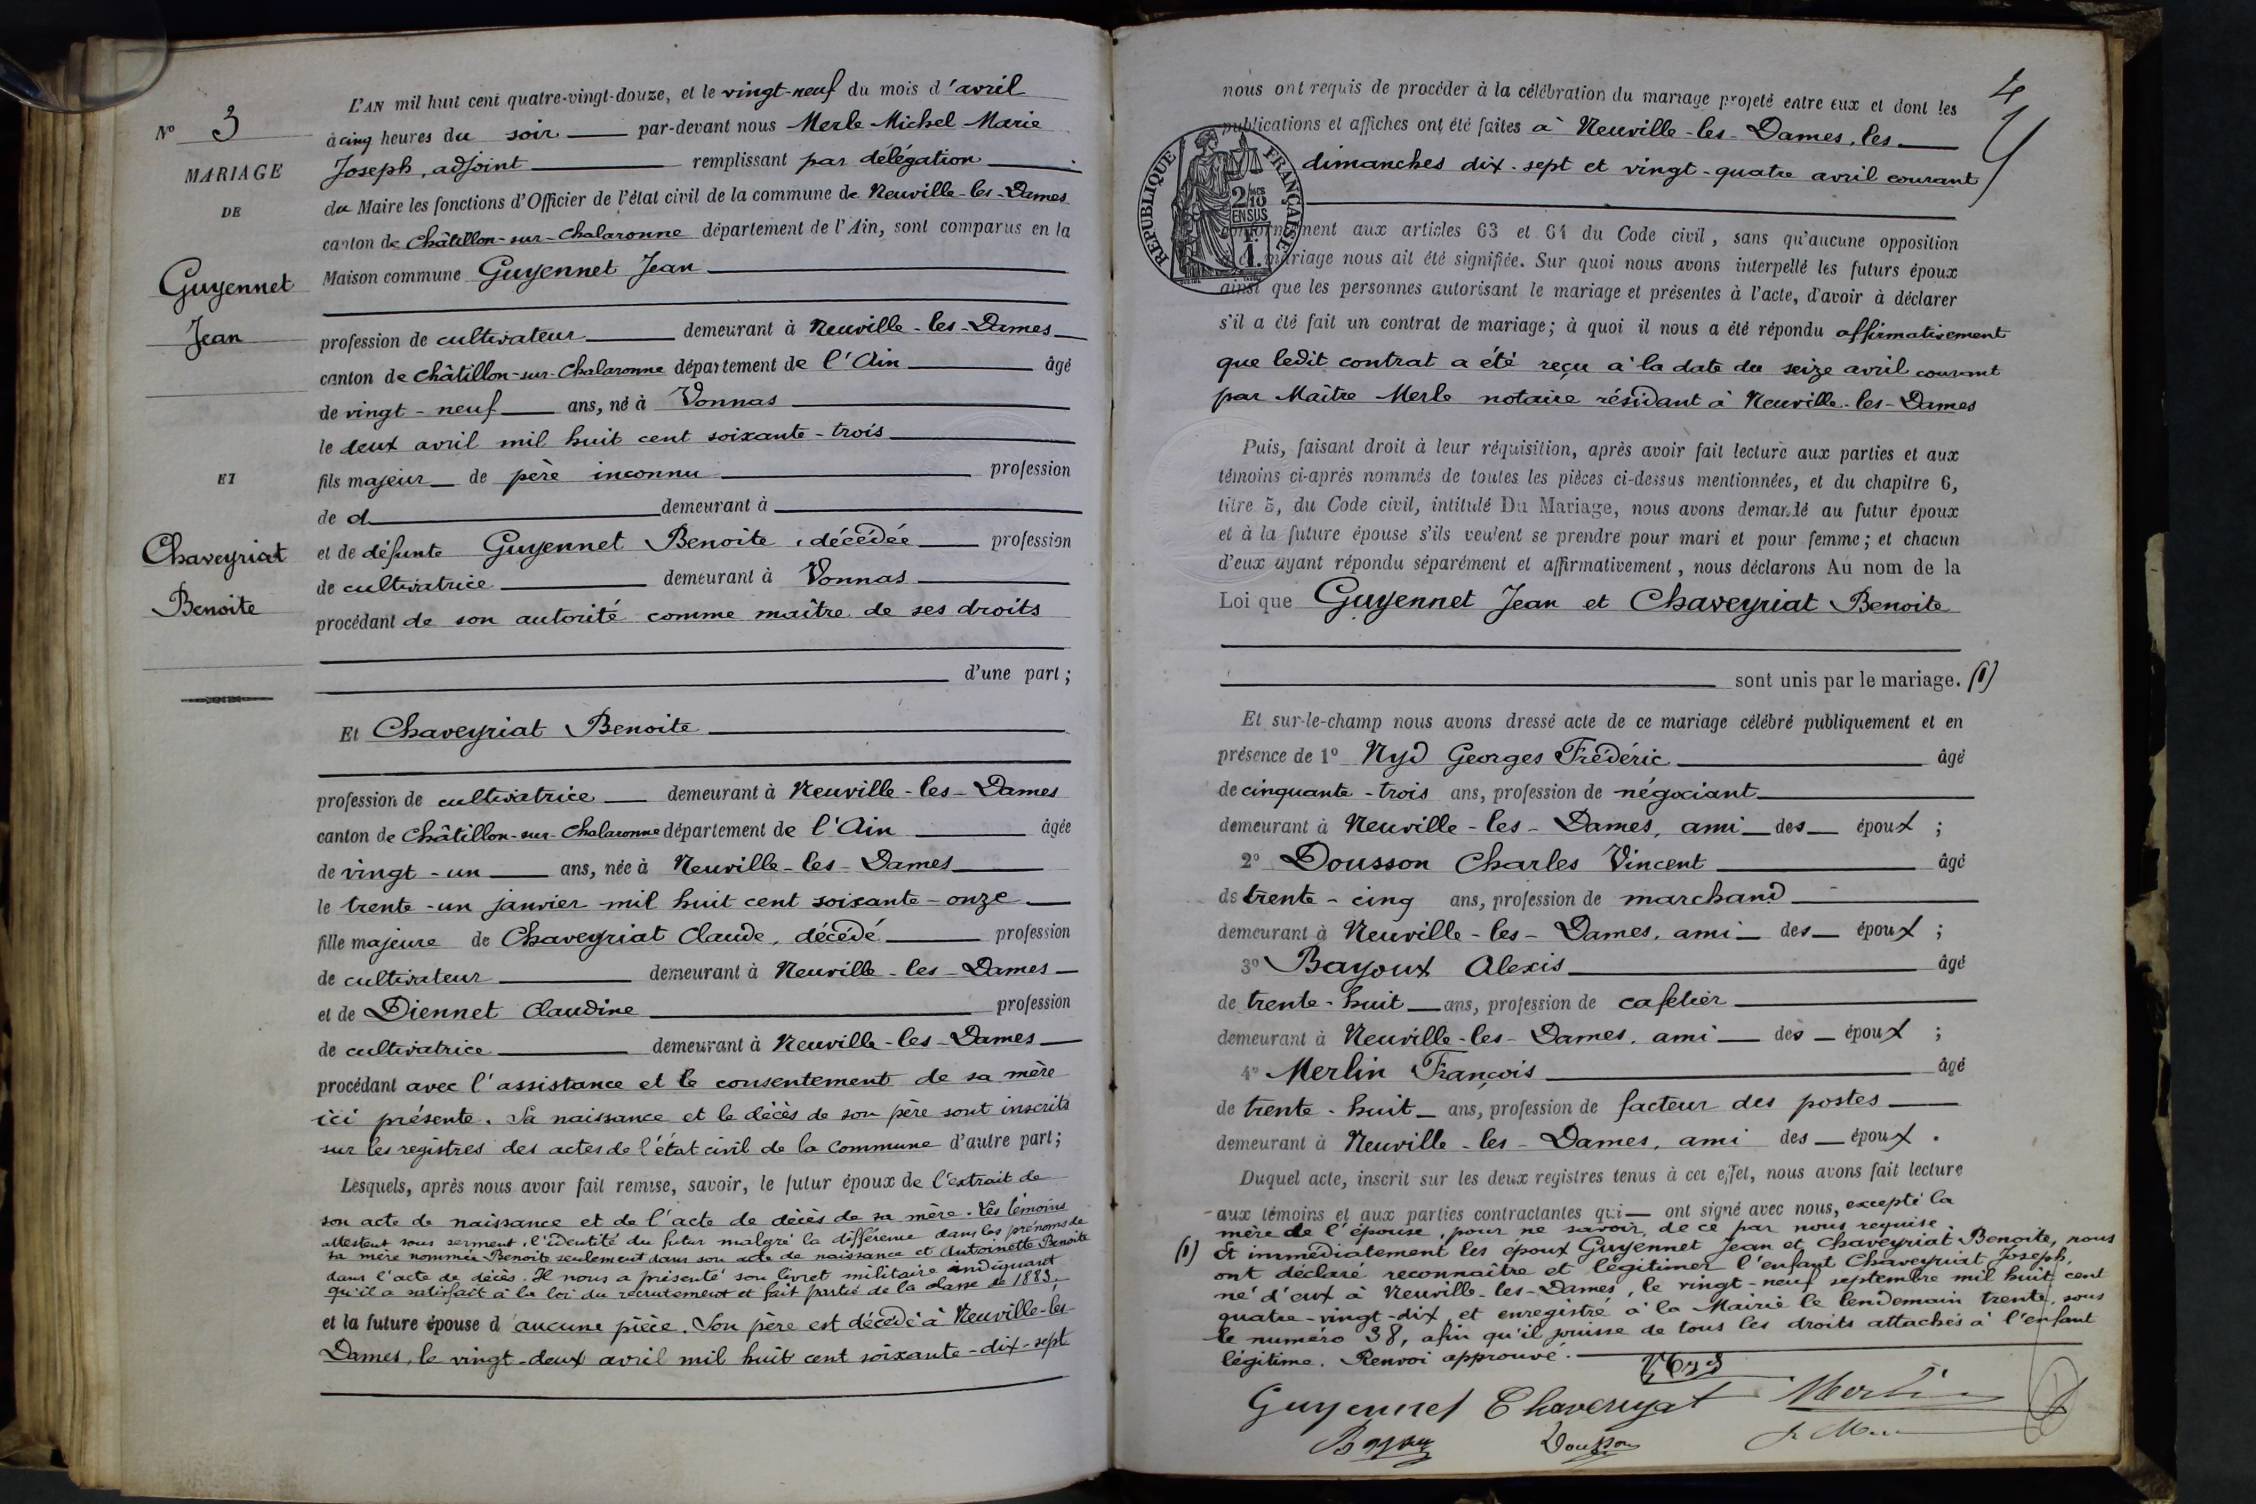 L'AN mil huit cent quatre-vingt-douze, et le vingt-neuf du mois d'avril
à cinq heures du soir par-devant nous Merle Michel Marie
Joseph, adjoint remplissant par délégation
du Maire les fonctions d'Officier de l'état civil de la commune de Neuville-les-Dames
canton de Châtillon-sur-Chalaronne département de l'Ain, sont comparus en la
Maison commune Guyennet Jean
profession de cultivateur demeurant à Neuville-les-Dames
canton de Châtillon-sur-Chalaronne département de l'Ain âgé
de vingt-neuf ans, né à Vonnas
le deux avril mil huit cent soixante-trois
fils majeur de père inconnu profession
de d demeurant à
et de défunte Guyennet Benoite, décédée profession
de cultivatrice demeurant à Vonnas
procédant de son autorité comme maître de ses droits
d'une part;
Et Chaveyriat Benoite
profession de cultivatrice demeurant à Neuville-les-Dames
canton de Châtillon-sur-Chalaronne département de l'Ain âgée
de vingt-un ans, née à Neuville-les-Dames
le trente-un janvier mil huit cent soixante-onze
fille majeure de Chaveyriat Claude, décédé profession
de cultivateur demeurant à Neuville-les-Dames
et de Diennet Claudine profession
de cultivatrice demeurant à Neuville-les-Dames
procédant avec l'assistance et le consentement de sa mère
ici présente. Sa naissance et le décès de son père sont inscrits
sur les registres des actes de l'état civil de la Commune d'autre part;
Lesquels, après nous avoir fait remise, savoir, le futur époux de l'extrait de
son acte de naissance et de l'acte de décès de sa mère. Les témoins
attestent sous serment, l'identité du futur malgré la différence dans les prénoms de
sa mère nommée Benoite seulement dans son acte de naissance et Antoinette Benoite
dans l'acte de décès. Il nous a présenté son livret militaire indiquant
qu'il a satisfait à la loi du recrutement et fait partie de la classe de 1883.
et la future épouse d'aucune pièce. Son père est décédé à Neuville-les-
Dames, le vingt-deux avril mil huit cent soixante-dix-sept
N° 3
MARIAGE
DE
Guyennet
Jean
ET
Chaveyriat
Benoite
4
nous ont requis de procéder à la célébration du mariage projeté entre eux et dont les
publications et affiches ont été faites à Neuville-les-Dames, les
dimanches dix-sept et vingt-quatre avril courant
RÉPUBLIQUE FRANÇAISE
2/10
EN SUS
1.
conformément aux articles 63 et 64 du Code civil, sans qu'aucune opposition
mariage nous ait été signifiée. Sur quoi nous avons interpellé les futurs époux
ainsi que les personnes autorisant le mariage et présentes à l'acte, d'avoir à déclarer
s'il a été fait un contrat de mariage; à quoi il nous a été répondu affirmativement
que ledit contrat a été reçu à la date du seize avril courant
par Maître Merle notaire résidant à Neuville-les-Dames
Puis, faisant droit à leur réquisition, après avoir fait lecture aux parties et aux
témoins ci-après nommés de toutes les pièces ci-dessus mentionnées, et du chapitre 6,
titre 5, du Code civil, intitulé Du Mariage, nous avons demandé au futur époux
et à la future épouse s'ils veulent se prendre pour mari et pour femme; et chacun
d'eux ayant répondu séparément et affirmativement, nous déclarons Au nom de la
Loi que Guyennet Jean et Chaveyriat Benoite
sont unis par le mariage. (1)
Et sur-le-champ nous avons dressé acte de ce mariage célébré publiquement et en
présence de 1° Nyd Georges Frédéric âgé
de cinquante-trois ans, profession de négociant
demeurant à Neuville-les-Dames, ami des époux;
2° Dousson Charles Vincent âgé
de trente-cinq ans, profession de marchand
demeurant à Neuville-les-Dames, ami des époux;
3° Bayoux Alexis âgé
de trente-huit ans, profession de cafetier
demeurant à Neuville-les-Dames, ami des époux;
4° Merlin François âgé
de trente-huit ans, profession de facteur des postes
demeurant à Neuville-les-Dames, ami des époux.
Duquel acte, inscrit sur les deux registres tenus à cet effet, nous avons fait lecture
aux témoins et aux parties contractantes qui ont signé avec nous, excepté la
mère de l'épouse, pour ne savoir, de ce par nous requise.
(1) Et immédiatement les époux Guyennet Jean et Chaveyriat Benoite, nous
ont déclaré reconnaître et légitimer l'enfant Chaveyriat Joseph,
né d'eux à Neuville-les-Dames, le vingt-neuf septembre mil huit cent
quatre-vingt-dix et enregistré à la Mairie le lendemain trente, sous
le numéro 38, afin qu'il jouisse de tous les droits attachés à l'enfant
légitime. Renvoi approuvé.
Nyd
Guyennet Chaveryat Merlin
Bayoux Dousson